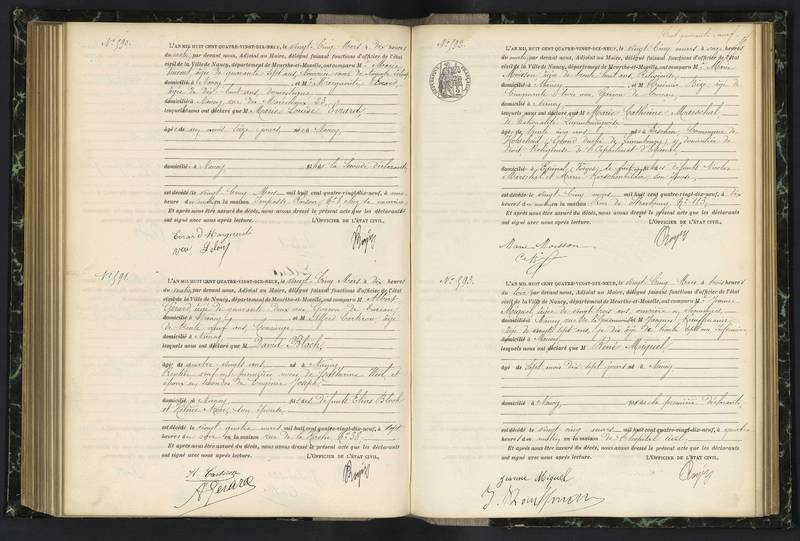 N° 590.
L'AN MIL HUIT CENT QUATRE-VINGT-DIX-NEUF, le vingt Cinq Mars à dix heures
du matin, par devant nous, Adjoint au Maire, délégué faisant fonctions d'officier de l'état
civil de la Ville de Nancy, département de Meurthe-et-Moselle, ont comparu M Marie
âgée de quarante sept ans,
domicilié à Nancy et M Marguerite Evrard,
âgée de dix huit ans, domestique,
domicilié à Nancy, rue des Maréchaux, 23,
lesquels nous ont déclaré que M Marie Louise Evrard,
âgé de un mois seize jours né à Nancy
domicilié à Nancy, fils de la seconde déclarante
est décédé le vingt Cinq Mars mil huit cent quatre-vingt-dix-neuf, à
heures du matin, en la maison Impasse
Et après nous être assuré du décès, nous avons dressé le présent acte que les déclarants
ont signé avec nous après lecture. L'OFFICIER DE L'ÉTAT CIVIL,
Evrard Marguerite
N° 591.
L'AN MIL HUIT CENT QUATRE-VINGT-DIX-NEUF, le vingt Cinq Mars à dix heures
du matin, par devant nous, Adjoint au Maire, délégué faisant fonctions d'officier de l'état
civil de la Ville de Nancy, département de Meurthe-et-Moselle, ont comparu M Albert
Gérard, âgé de quarante deux ans, Garçon de bureau,
domicilié à Nancy, et M Alfred âgé
de trente neuf ans, Concierge,
domicilié à Nancy
lesquels nous ont déclaré que M David Bloch,
âgé de quatre vingts ans né à Nancy
Rentier, veuf en premières noces de Noel, et
époux en secondes de Eugénie Joseph,
domicilié à Nancy fils des défunts Elias Bloch
et son épouse,
est décédé le vingt quatre mars mil huit cent quatre-vingt-dix-neuf, à sept
heures du soir en la maison rue de la N° 38
Et après nous être assuré du décès, nous avons dressé le présent acte que les déclarants
ont signé avec nous après lecture. L'OFFICIER DE L'ÉTAT CIVIL,
A. Gérard
N° 592.
L'AN MIL HUIT CENT QUATRE-VINGT-DIX-NEUF, le vingt Cinq mars à onze heures
du matin, par devant nous, Adjoint au Maire, délégué faisant fonctions d'officier de l'état
civil de la Ville de Nancy, département de Meurthe-et-Moselle, ont comparu M Marie
Moisson âgée de trente huit ans, Religieuse,
domicilié à Nancy et M âgé de
Cinquante ans, Garçon de bureau,
domicilié à Nancy
lesquels nous ont déclaré que M Marie Catherine Marschal,
de nationalité Luxembourgeoise
âgé de trente cinq ans né à Commune de
(Grand duché de Luxembourg) domiciliée de
droit Religieuse de l'Orphelinat d'Epinal
domicilié à Epinal (Vosges) fils des défunts Nicolas
Marschal et Marie
est décédé le vingt Cinq mars mil huit cent quatre-vingt-dix-neuf, à dix
heures du matin en la maison Rue de Strasbourg, N° 113
Et après nous être assuré du décès, nous avons dressé le présent acte que les déclarants
ont signé avec nous après lecture. L'OFFICIER DE L'ÉTAT CIVIL,
Marie Moisson
N° 593.
L'AN MIL HUIT CENT QUATRE-VINGT-DIX-NEUF, le vingt Cinq Mars à trois heures
du soir, par devant nous, Adjoint au Maire, délégué faisant fonctions d'officier de l'état
civil de la Ville de Nancy, département de Meurthe-et-Moselle, ont comparu M Jeanne
Miguel, âgée de vingt trois ans, ouvrière en chaussures,
domicilié à Nancy, et M Jacques Kauffmann,
âgé de trente sept ans,
domicilié à Nancy
lesquels nous ont déclaré que M René Miguel,
âgé de Sept mois dix sept jours né à Nancy,
domicilié à Nancy fils de la première déclarante
est décédé le vingt cinq mars mil huit cent quatre-vingt-dix-neuf, à quatre
heures du matin, en la maison de l'hôpital civil.
Et après nous être assuré du décès, nous avons dressé le présent acte que les déclarants
ont signé avec nous après lecture. L'OFFICIER DE L'ÉTAT CIVIL,
Jeanne Miguel
J. Kauffmann